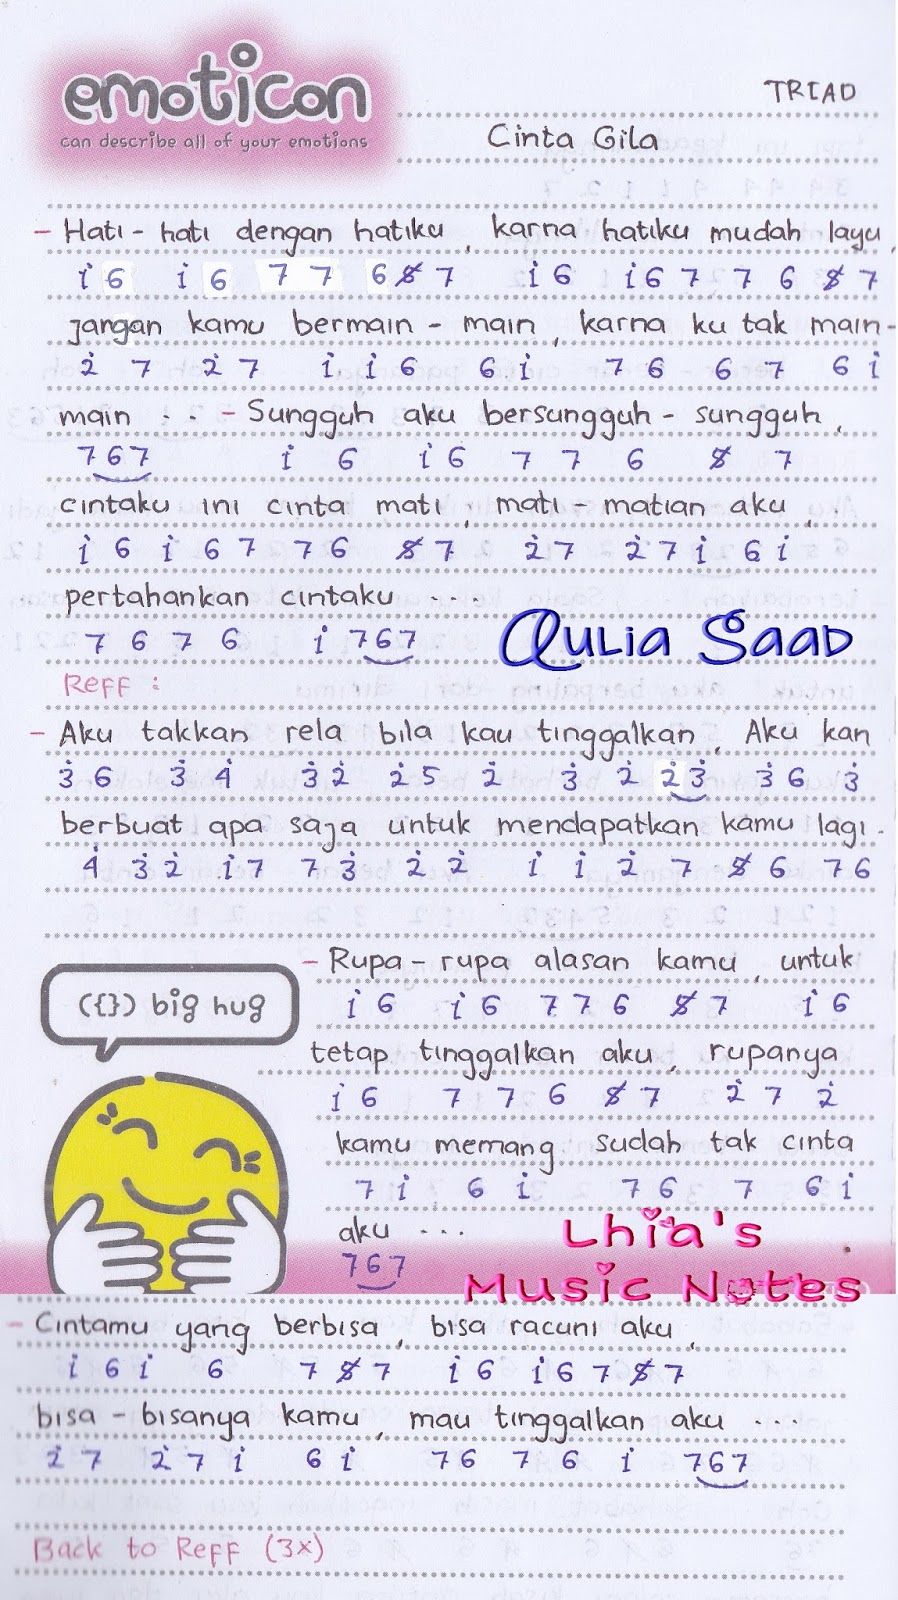 emoticon
can describe all of your emotions
TRIAD
Cinta Gila
- Hati - hati dengan hatiku, karna hatiku mudah layu,
i̇ 6 i̇ 6 7 7 6 5̸ 7 i̇ 6 i̇ 6 7 7 6 5̸ 7
jangan kamu bermain - main, karna ku tak main-
2̇ 7 2̇ 7 i̇ i̇ 6 6 i̇ 7 6 6 7 6 i̇
main .. - Sungguh aku bersungguh - sungguh,
7 6 7 i̇ 6 i̇ 6 7 7 6 5̸ 7
cintaku ini cinta mati, mati - matian aku,
i̇ 6 i̇ 6 7 7 6 5̸ 7 2̇ 7 2̇ 7 i̇ 6 i̇
pertahankan cintaku ...
7 6 7 6 i̇ 7 6 7
Qulia Saad
Reff :
- Aku takkan rela bila kau tinggalkan, Aku kan
3̇ 6 3̇ 4̇ 3̇ 2̇ 2̇ 5 2̇ 3̇ 2̇ 2̇ 3̇ 3̇ 6 3̇
berbuat apa saja untuk mendapatkan kamu lagi.
4̇ 3̇ 2̇ i̇ 7 7 3̇ 2̇ 2̇ i̇ i̇ 2̇ 7 5̸ 6 7 6
- Rupa - rupa alasan kamu, untuk
i̇ 6 i̇ 6 7 7 6 5̸ 7 i̇ 6
({}) big hug
tetap tinggalkan aku, rupanya
i̇ 6 7 7 6 5̸ 7 2̇ 7 2̇
kamu memang sudah tak cinta
7 i̇ 6 i̇ 7 6 7 6 i̇
aku ...
7 6 7
Lhia's
Music Notes
- Cintamu yang berbisa, bisa racuni aku,
i̇ 6 i̇ 6 7 5̸ 7 i̇ 6 i̇ 6 7 5̸ 7
bisa - bisanya kamu, mau tinggalkan aku ....
2̇ 7 2̇ 7 i̇ 6 i̇ 7 6 7 6 i̇ 7 6 7
Back to Reff (3x)